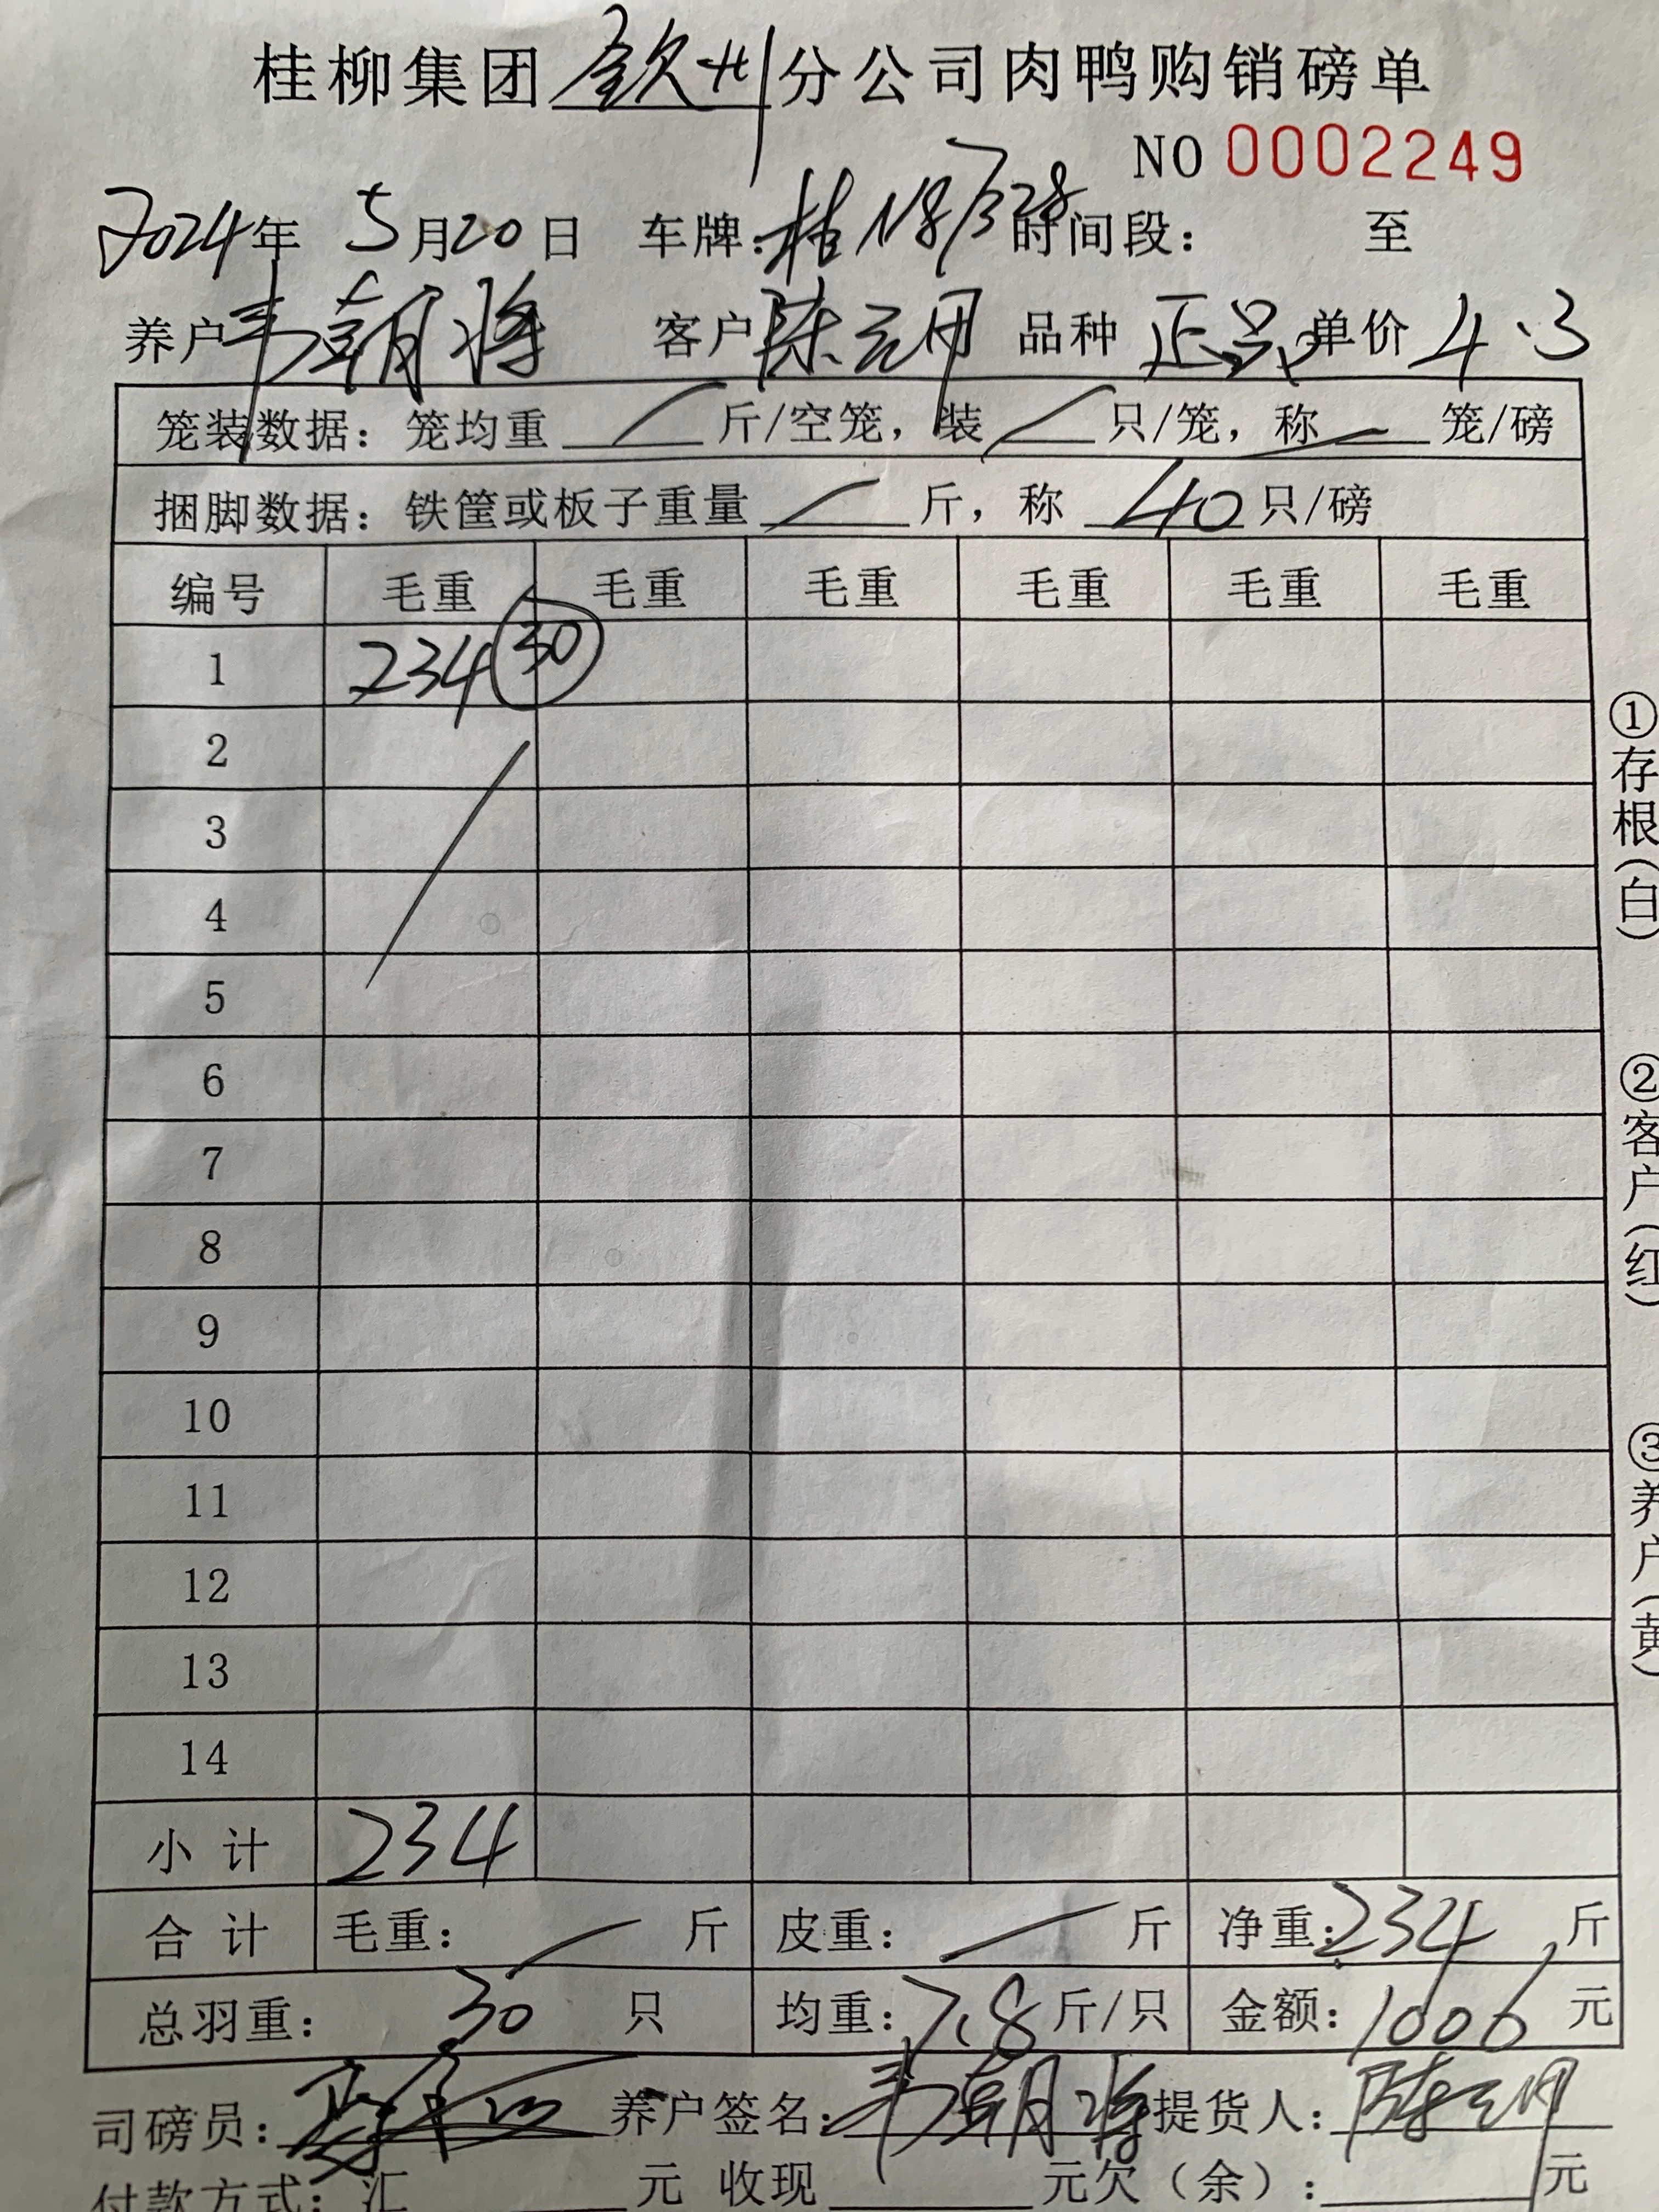 桂柳集团钦州分公司肉鸭购销磅单
NO 0002249
2024年 5月20日 车牌：桂N8 时间段： 至
养户 韦朝将 客户 陈云明 品种 正品 单价 4.3
笼装数据：笼均重 斤/空笼，装 只/笼，称 笼/磅
捆脚数据：铁筐或板子重量 斤，称 40 只/磅
编号 毛重 毛重 毛重 毛重 毛重 毛重
1 234 30
2
3
4
5
6
7
8
9
10
11
12
13
14
小计 234
合计 毛重： 斤 皮重： 斤 净重：234 斤
总羽重： 30 只 均重：7.8 斤/只 金额：1006 元
司磅员： 养户签名：韦朝将 提货人：陈云明
付款方式：汇 元 收现 元欠（余）： 元
①存根（白）
②客户（红）
③养户（黄）